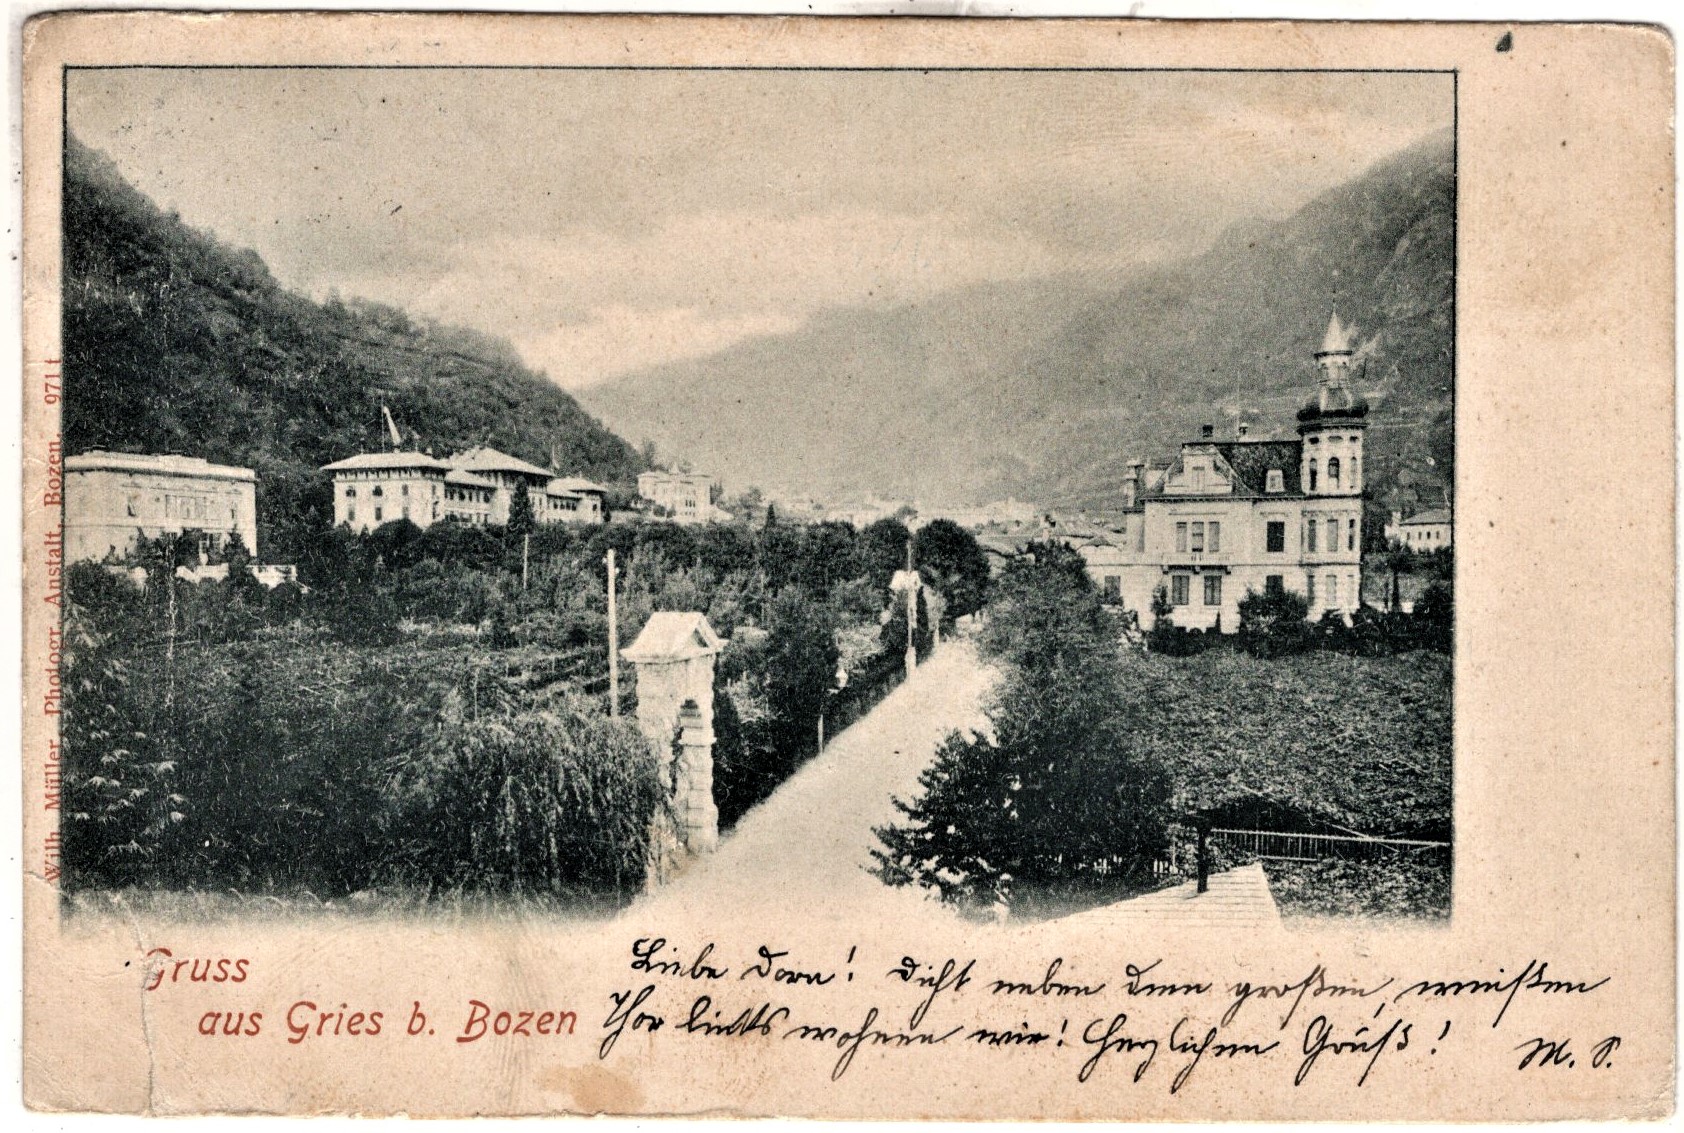 Wilh. Müller, Photogr. Anstalt, Bozen. 971 t
Gruss
aus Gries b. Bozen
Liebe Dora! Dicht neben dem großen, weißen
Thor links wohnen wir! Herzlichen Gruß!
M. S.